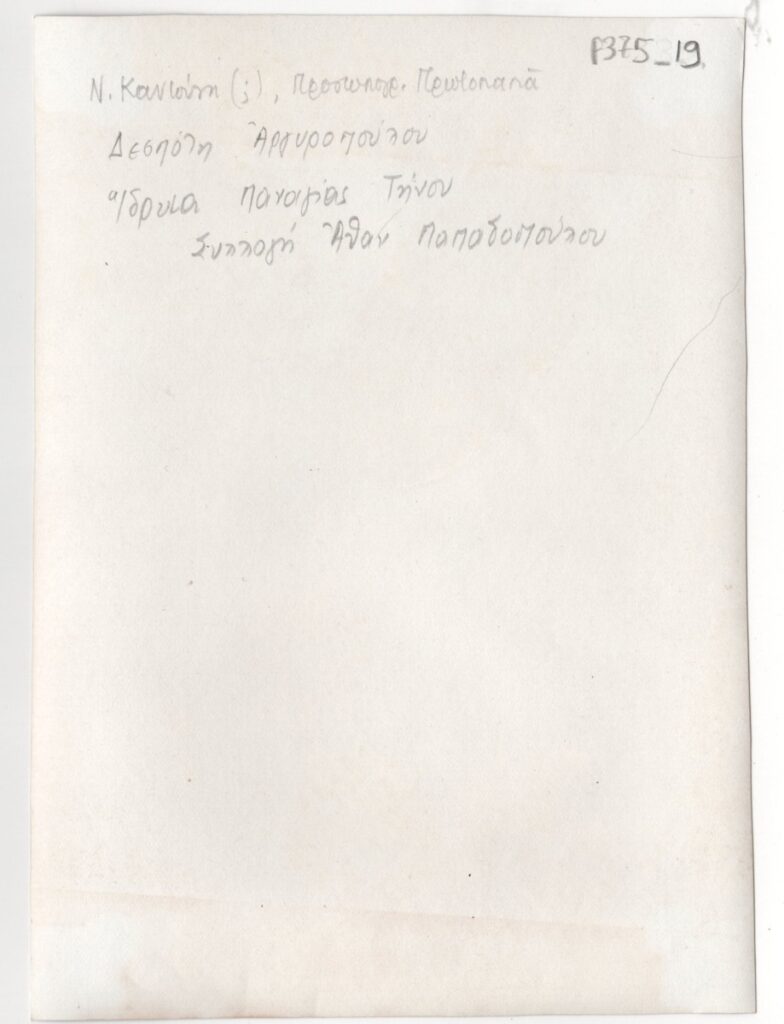 P375_19
Ν. Καντούνη (;), Προσωπογρ. Πρωτοπαπᾶ
Δεσπότη Ἀργυροπούλου
Ἵδρυμα Παναγίας Τήνου
Συλλογή Ἀθαν Παπαδοπούλου